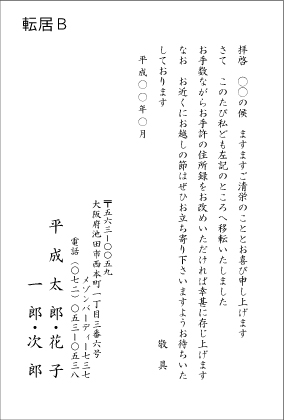 転居B
拝啓　〇〇の候　ますますご清栄のこととお喜び申し上げます
さて　このたび私ども左記のところへ移転いたしました
お手数ながらお手許の住所録をお改めいただければ幸甚に存じ上げます
なお　お近くにお越しの節はぜひお立ち寄り下さいますようお待ちいた
しております
敬具
平成〇〇年〇月
〒五六三－〇〇五九
大阪府池田市西本町一丁目三番六号
メゾンバーディー七三七
電話（〇七二）〇五三－〇五三八
平成太郎・花子
一郎・次郎